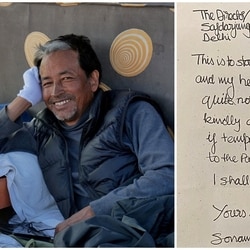 The Director
Safdarjung
Delhi
This is to sta
and my he
quite no
kindly a
if temp
to the Pa
I shall
Yours
Sonam